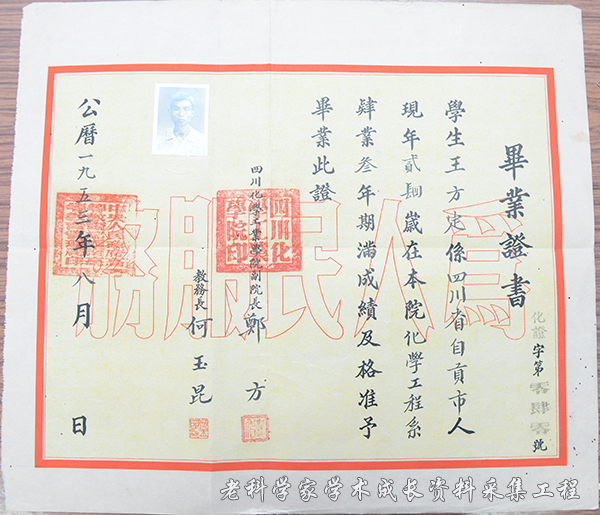 畢業證書
化證字第零肆零號
學生王方定係四川省自貢市人
現年貳肆歲在本院化學工程系
肄業叁年期滿成績及格准予
畢業此證
四川化學工業學院副院長 鄭方
教務長 何玉昆
四川化學院印
公曆一九五三年八月 日
為人民服務
老科学家学术成长资料采集工程